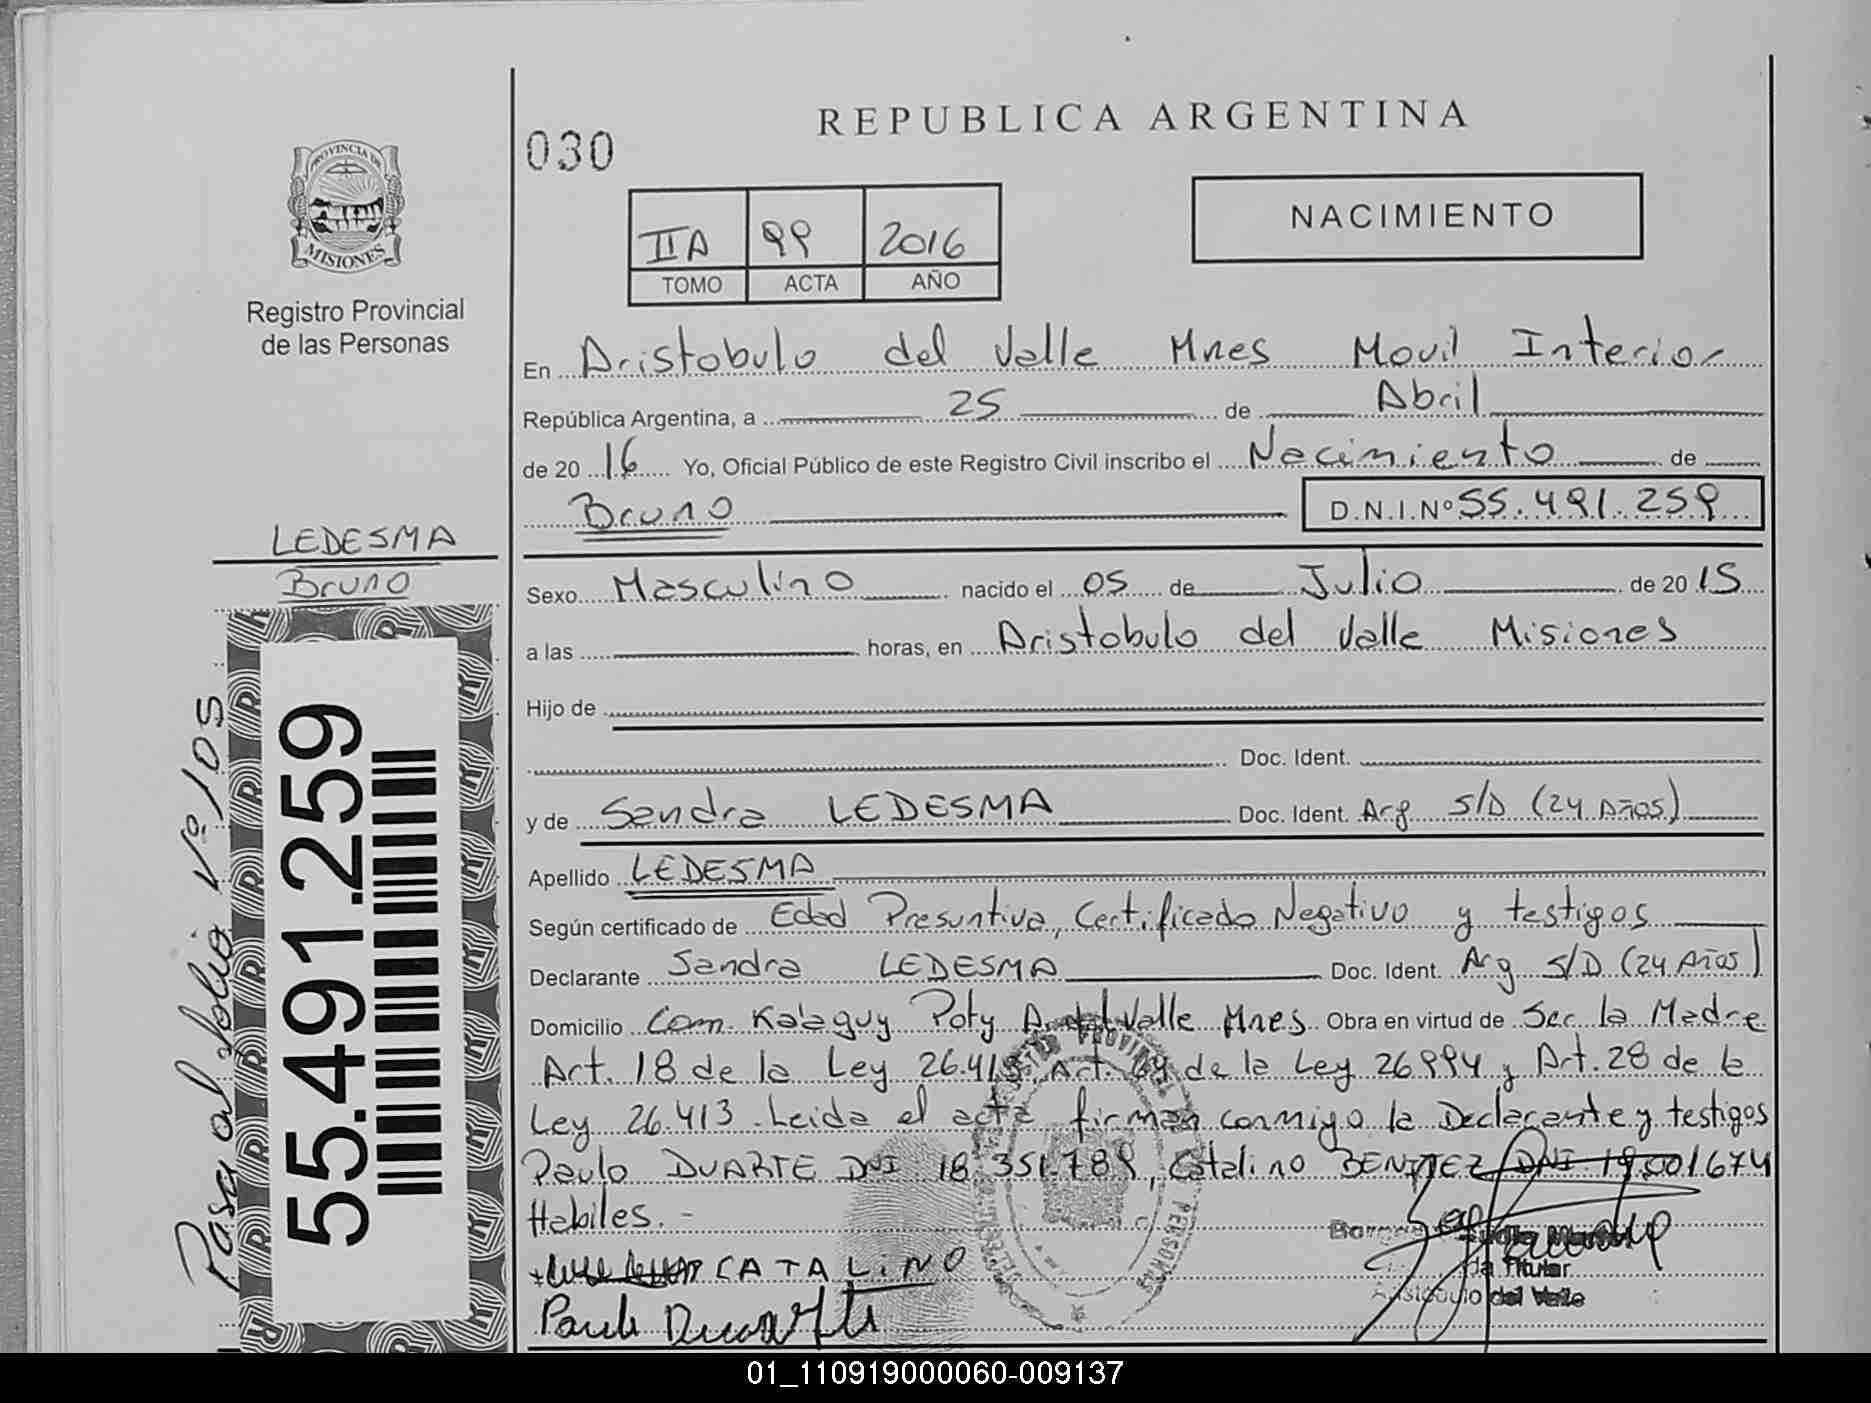 REPUBLICA ARGENTINA
030
PROVINCIA DE
MISIONES
Registro Provincial
de las Personas
IIA 99 2016
TOMO ACTA AÑO
NACIMIENTO
En Aristobulo del Valle Mnes Movil Interior
República Argentina, a 25 de Abril
de 20 16 Yo, Oficial Público de este Registro Civil inscribo el Nacimiento de
Bruno D.N.I.Nº 55.491.259
LEDESMA
Bruno
Sexo Masculino nacido el 05 de Julio de 20 15
a las horas, en Aristobulo del Valle Misiones
Hijo de
Doc. Ident.
y de Sandra LEDESMA Doc. Ident. Arg S/D (24 Años)
Apellido LEDESMA
Según certificado de Edad Presuntiva, Certificado Negativo y testigos
Declarante Sandra LEDESMA Doc. Ident. Arg S/D (24 Años)
Domicilio Com. Ka'aguy Poty A. del Valle Mnes Obra en virtud de Ser la Madre
Art. 18 de la Ley 26.413, Art. 64 de la Ley 26994 y Art. 28 de la
Ley 26.413. Leida el acta firman conmigo la Declarante y testigos
Paulo DUARTE DNI 18.351.789, Catalino BENITEZ DNI 19.001674
Habiles. -
CATALINO
Paulo Duarte
Titular
Aristobulo del Valle
Pasa al folio Nº 105
55.491.259
01_110919000060-009137